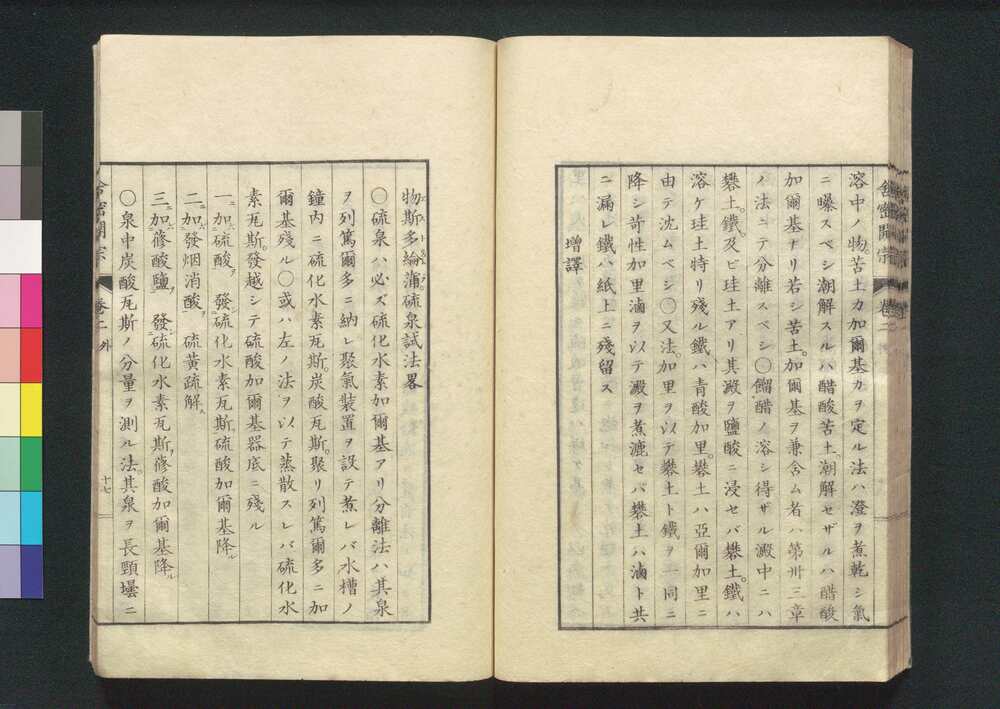 溶中ノ物苦土カ加爾基カヲ定ル法ハ澄ヲ煮乾シ氣
ニ曝スベシ潮解スルハ醋酸苦土潮解セザルハ醋酸
加爾基ナリ若シ苦土加爾基ヲ兼含ム者ハ第卅三章
ノ法ニテ分離スベシ〇餾醋ノ溶シ得ザル澱中ニハ
礬土鐵及ビ珪土アリ其澱ヲ鹽酸ニ浸セバ礬土鐵ハ
溶ケ珪土特リ殘ル鐵ハ青酸加里礬土ハ亞爾加里ニ
由テ沈ムベシ〇又法加里ヲ以テ礬土ト鐵ヲ一同ニ
降シ苛性加里滷ヲ以テ澱ヲ煮漉セバ礬土ハ滷ト共
ニ漏レ鐵ハ紙上ニ殘留ス
増譯
舍密開宗 卷二 外
物斯多綸蒲硫泉試法畧
〇硫泉ハ必ズ硫化水素加爾基アリ分離法ハ其泉
ヲ列篤爾多ニ納レ聚氣裝置ヲ設テ煮レバ水槽ノ
鐘内ニ硫化水素瓦斯炭酸瓦斯聚リ列篤爾多ニ加
爾基殘ル〇或ハ左ノ法ヲ以テ蒸散スレバ硫化水
素瓦斯發越シテ硫酸加爾基器底ニ殘ル
一加硫酸 發硫化水素瓦斯硫酸加爾基降ル
二加發烟消酸 硫黄疏解
三加蓚酸鹽 發硫化水素瓦斯蓚酸加爾基降ル
〇泉中炭酸瓦斯ノ分量ヲ測ル法其泉ヲ長頸壜ニ
舍密開宗 卷二 外 十七